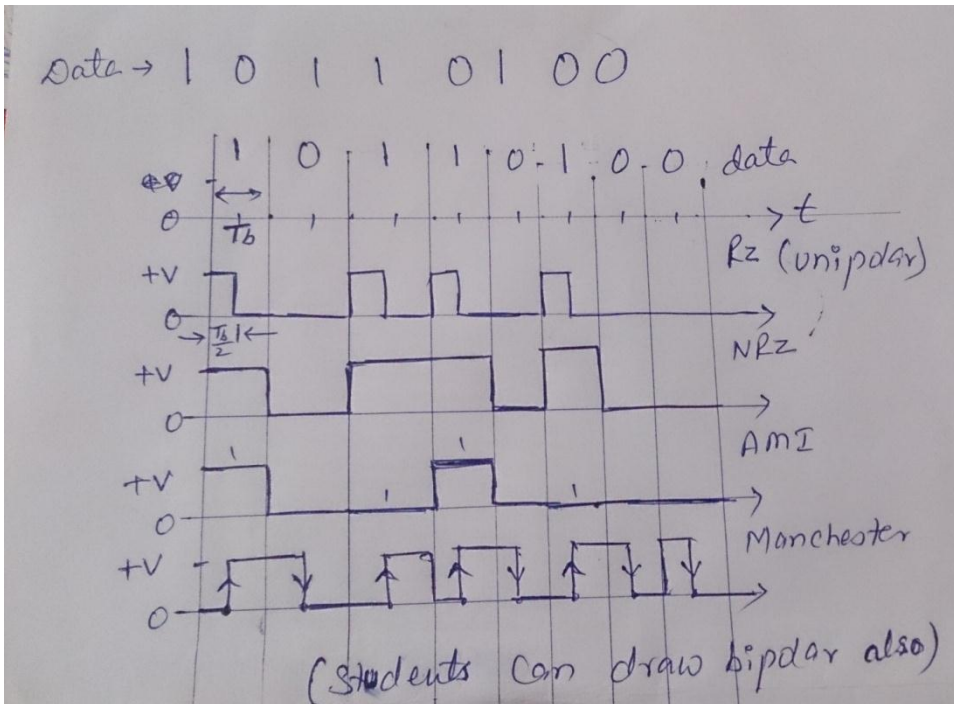 Data → 1 0 1 1 0 1 0 0
1 0 1 1 0 1 0 0 data
0 Tb t
RZ (unipolar)
+V
0
Tb/2
NRZ
+V
0
AMI
1
+V
1 1
0
Manchester
+V
0
(Students can draw bipolar also)